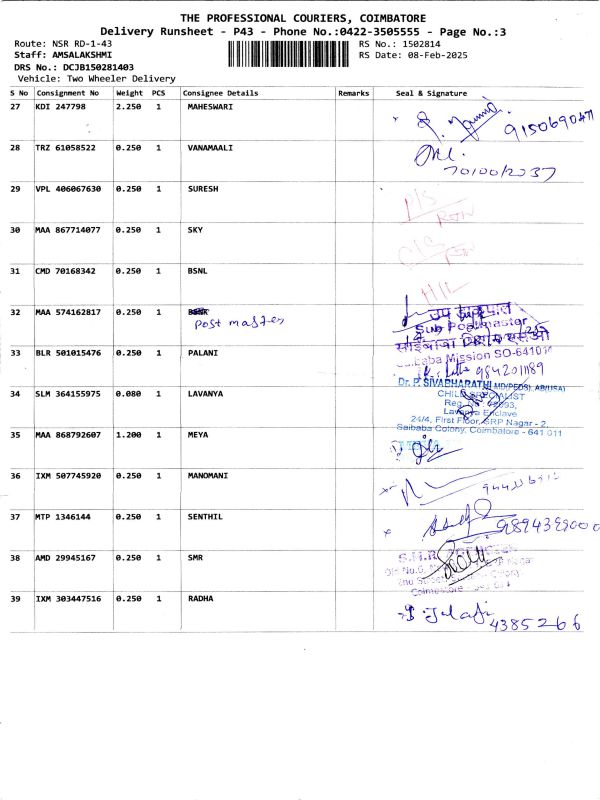 THE PROFESSIONAL COURIERS, COIMBATORE
Delivery Runsheet - P43 - Phone No.:0422-3505555 - Page No.:3
Route: NSR RD-1-43
RS No.: 1502814
Staff: AMSALAKSHMI
RS Date: 08-Feb-2025
DRS No.: DCJB150281403
Vehicle: Two Wheeler Delivery
S No Consignment No Weight PCS Consignee Details Remarks Seal & Signature
27 KDI 247798 2.250 1 MAHESWARI
28 TRZ 61058522 0.250 1 VANAMAALI
29 VPL 406067630 0.250 1 SURESH
30 MAA 867714077 0.250 1 SKY
31 CMD 70168342 0.250 1 BSNL
H/L
32 MAA 574162817 0.250 1
Post master
उप डाकपाल
Sub Postmaster
Saibaba Mission SO-641011
33 BLR 501015476 0.250 1 PALANI
9842011189
34 SLM 364155975 0.080 1 LAVANYA
Dr. P. SIVABHARATHI MD(PEDS), AB(USA)
CHILD SPECIALIST
Lavanya Enclave
24/4, First Floor, SRP Nagar - 2,
Saibaba Colony, Coimbatore - 641 011
35 MAA 868792607 1.200 1 MEYA
36 IXM 507745920 0.250 1 MANOMANI
37 MTP 1346144 0.250 1 SENTHIL
9894399000
38 AMD 29945167 0.250 1 SMR
S.M.R.
39 IXM 303447516 0.250 1 RADHA
4385266